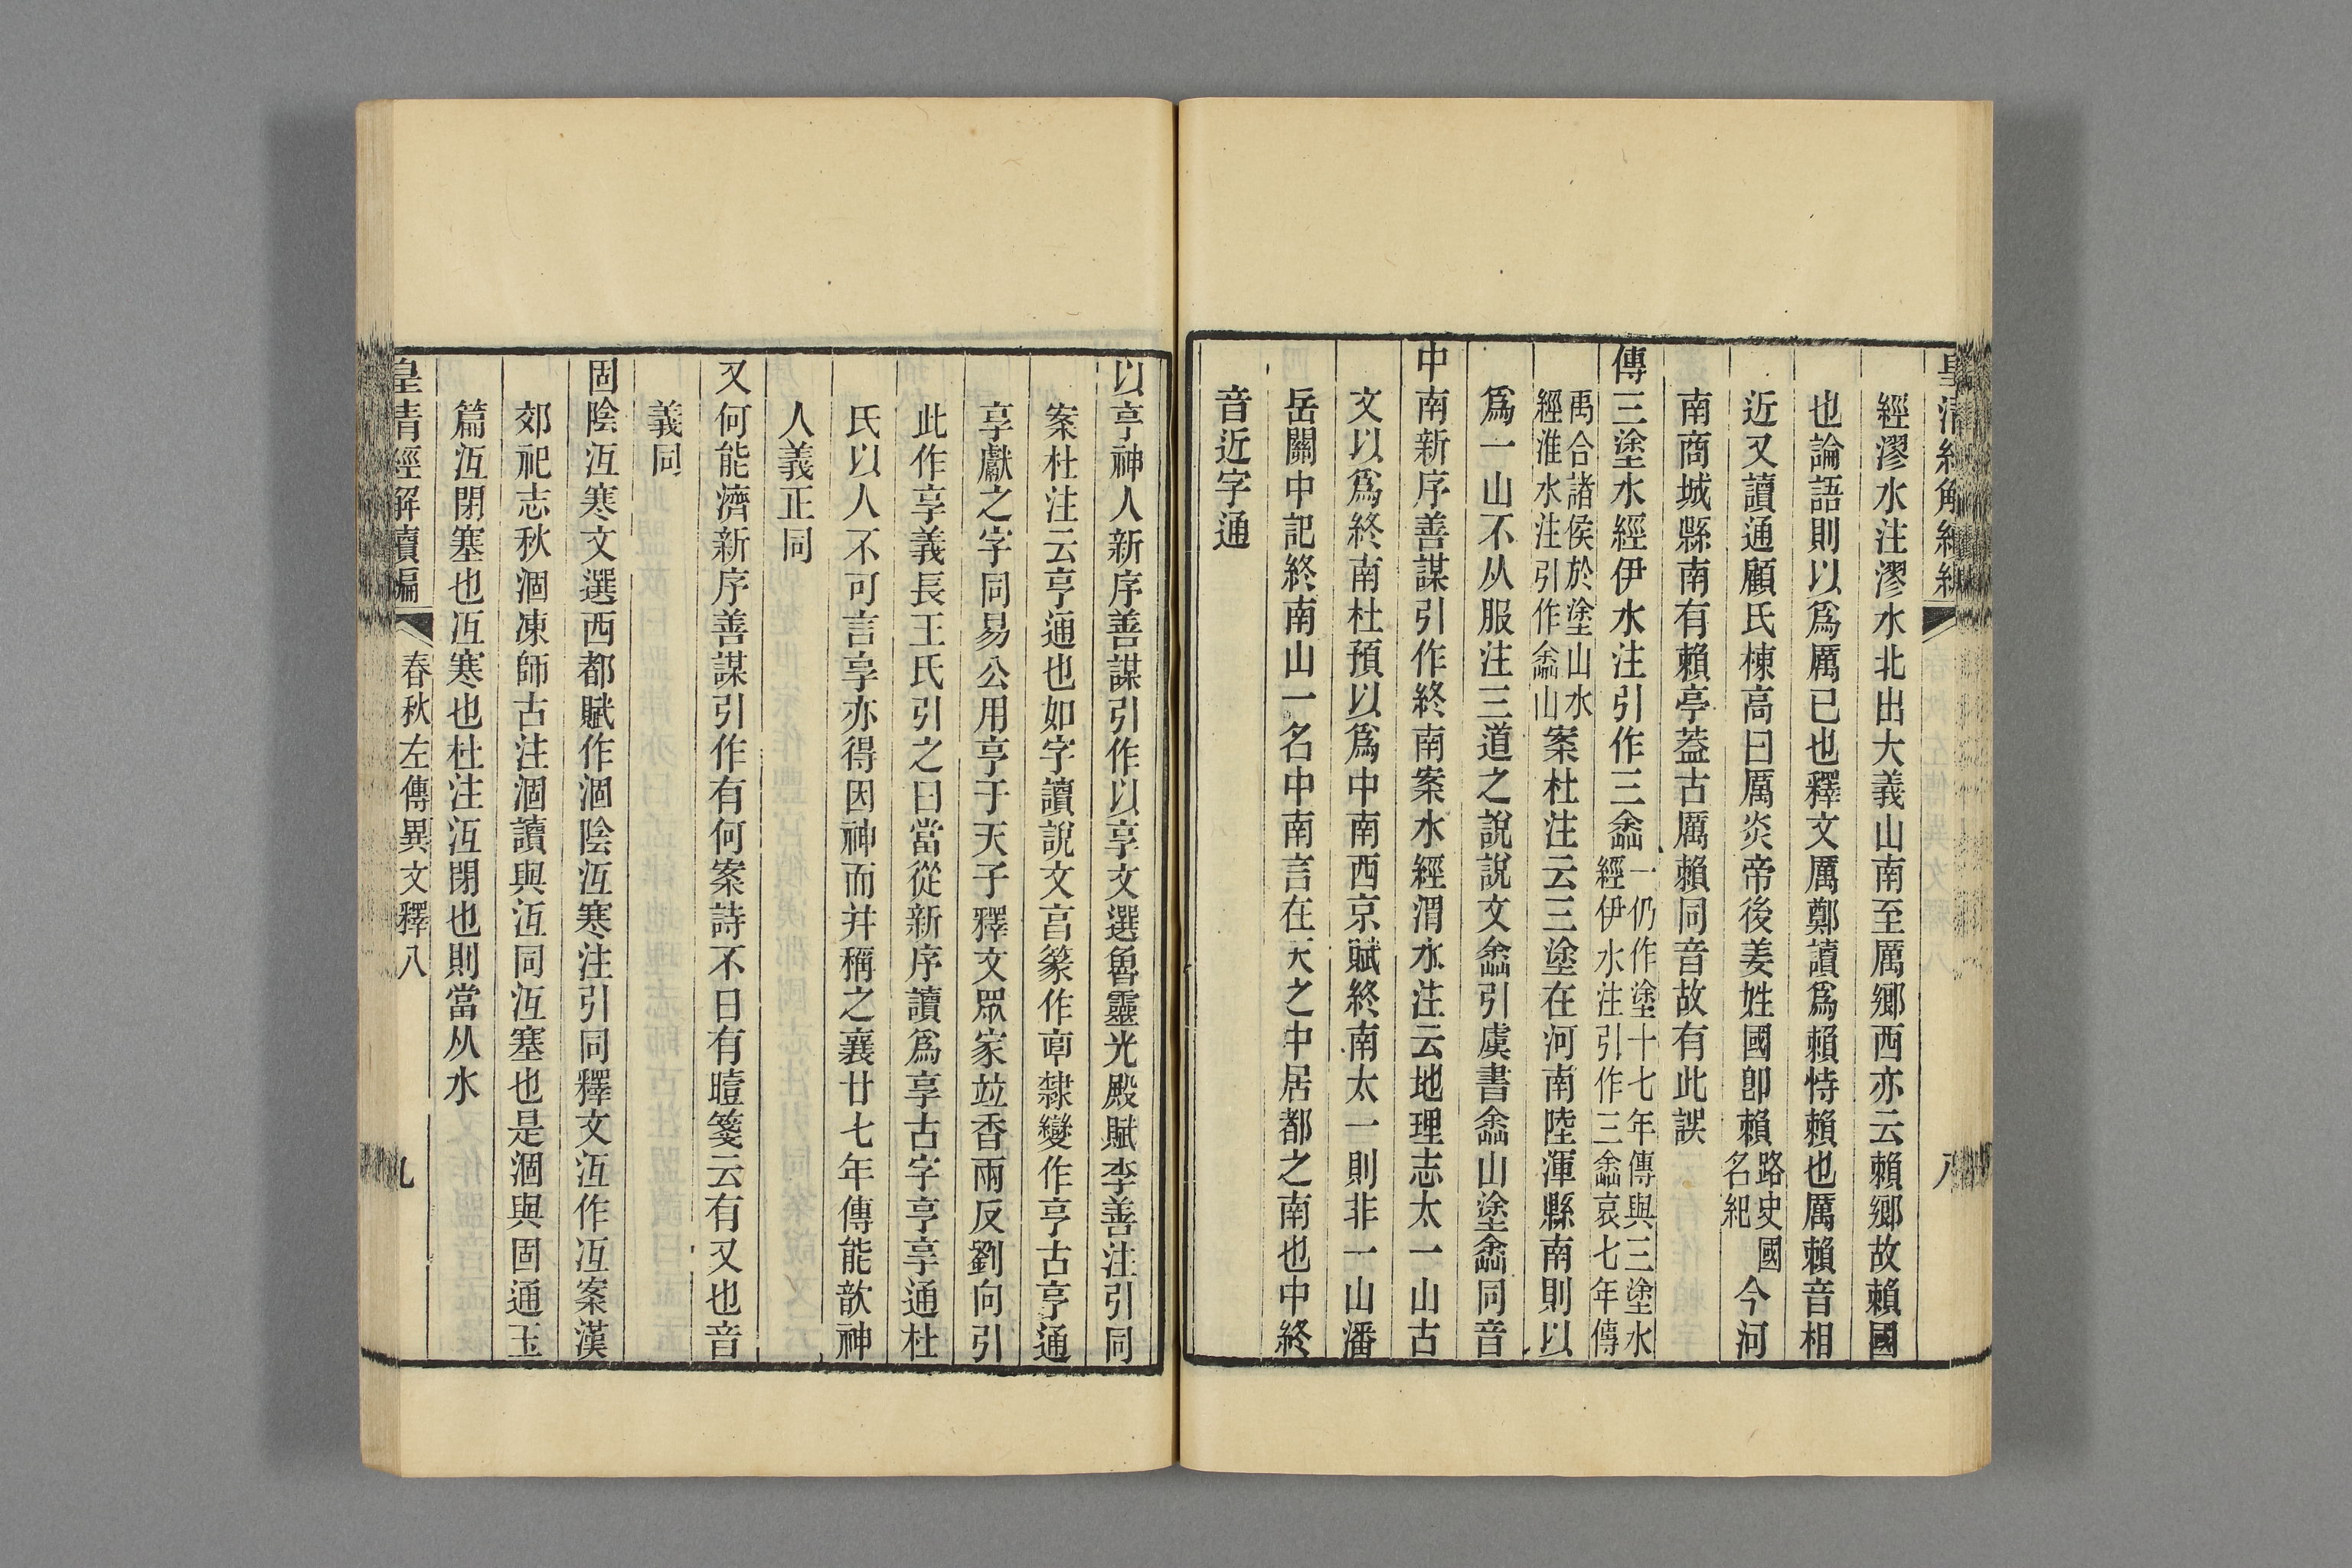 經漻水注漻水北出大義山南至厲鄉西亦云賴鄉故賴國
也論語則以爲厲已也釋文厲鄭讀爲賴恃賴也厲賴音相
近又讀通顧氏棟高曰厲炎帝後姜姓國卽賴路史國名紀今河
南商城縣南有賴亭葢古厲賴同音故有此誤
傳三塗水經伊水注引作三嵞一仍作塗十七年傳與三塗水經伊水注引作三嵞哀七年傳
禹合諸侯於塗山水經淮水注引作嵞山案杜注云三塗在河南陸渾縣南則以
爲一山不从服注三道之說說文嵞引虞書嵞山塗嵞同音
中南新序善謀引作終南案水經渭水注云地理志太一山古
文以爲終南杜預以爲中南西京賦終南太一則非一山潘
岳關中記終南山一名中南言在天之中居都之南也中終
音近字通
以亨神人新序善謀引作以享文選魯靈光殿賦李善注引同
案杜注云亨通也如字讀說文亯篆作𠅠隸變作亨古亨通
享獻之字同易公用亨于天子釋文眾家竝香兩反劉向引
此作享義長王氏引之曰當從新序讀爲享古字亨享通杜
氏以人不可言享亦得因神而并稱之襄廿七年傳能歆神
人義正同
又何能濟新序善謀引作有何案詩不日有曀箋云有又也音
義同
固陰沍寒文選西都賦作涸陰沍寒注引同釋文沍作冱案漢
郊祀志秋涸凍師古注涸讀與沍同沍塞也是涸與固通玉
篇沍閉塞也冱寒也杜注沍閉也則當从水
皇清經解續編
春秋左傳異文釋八
九